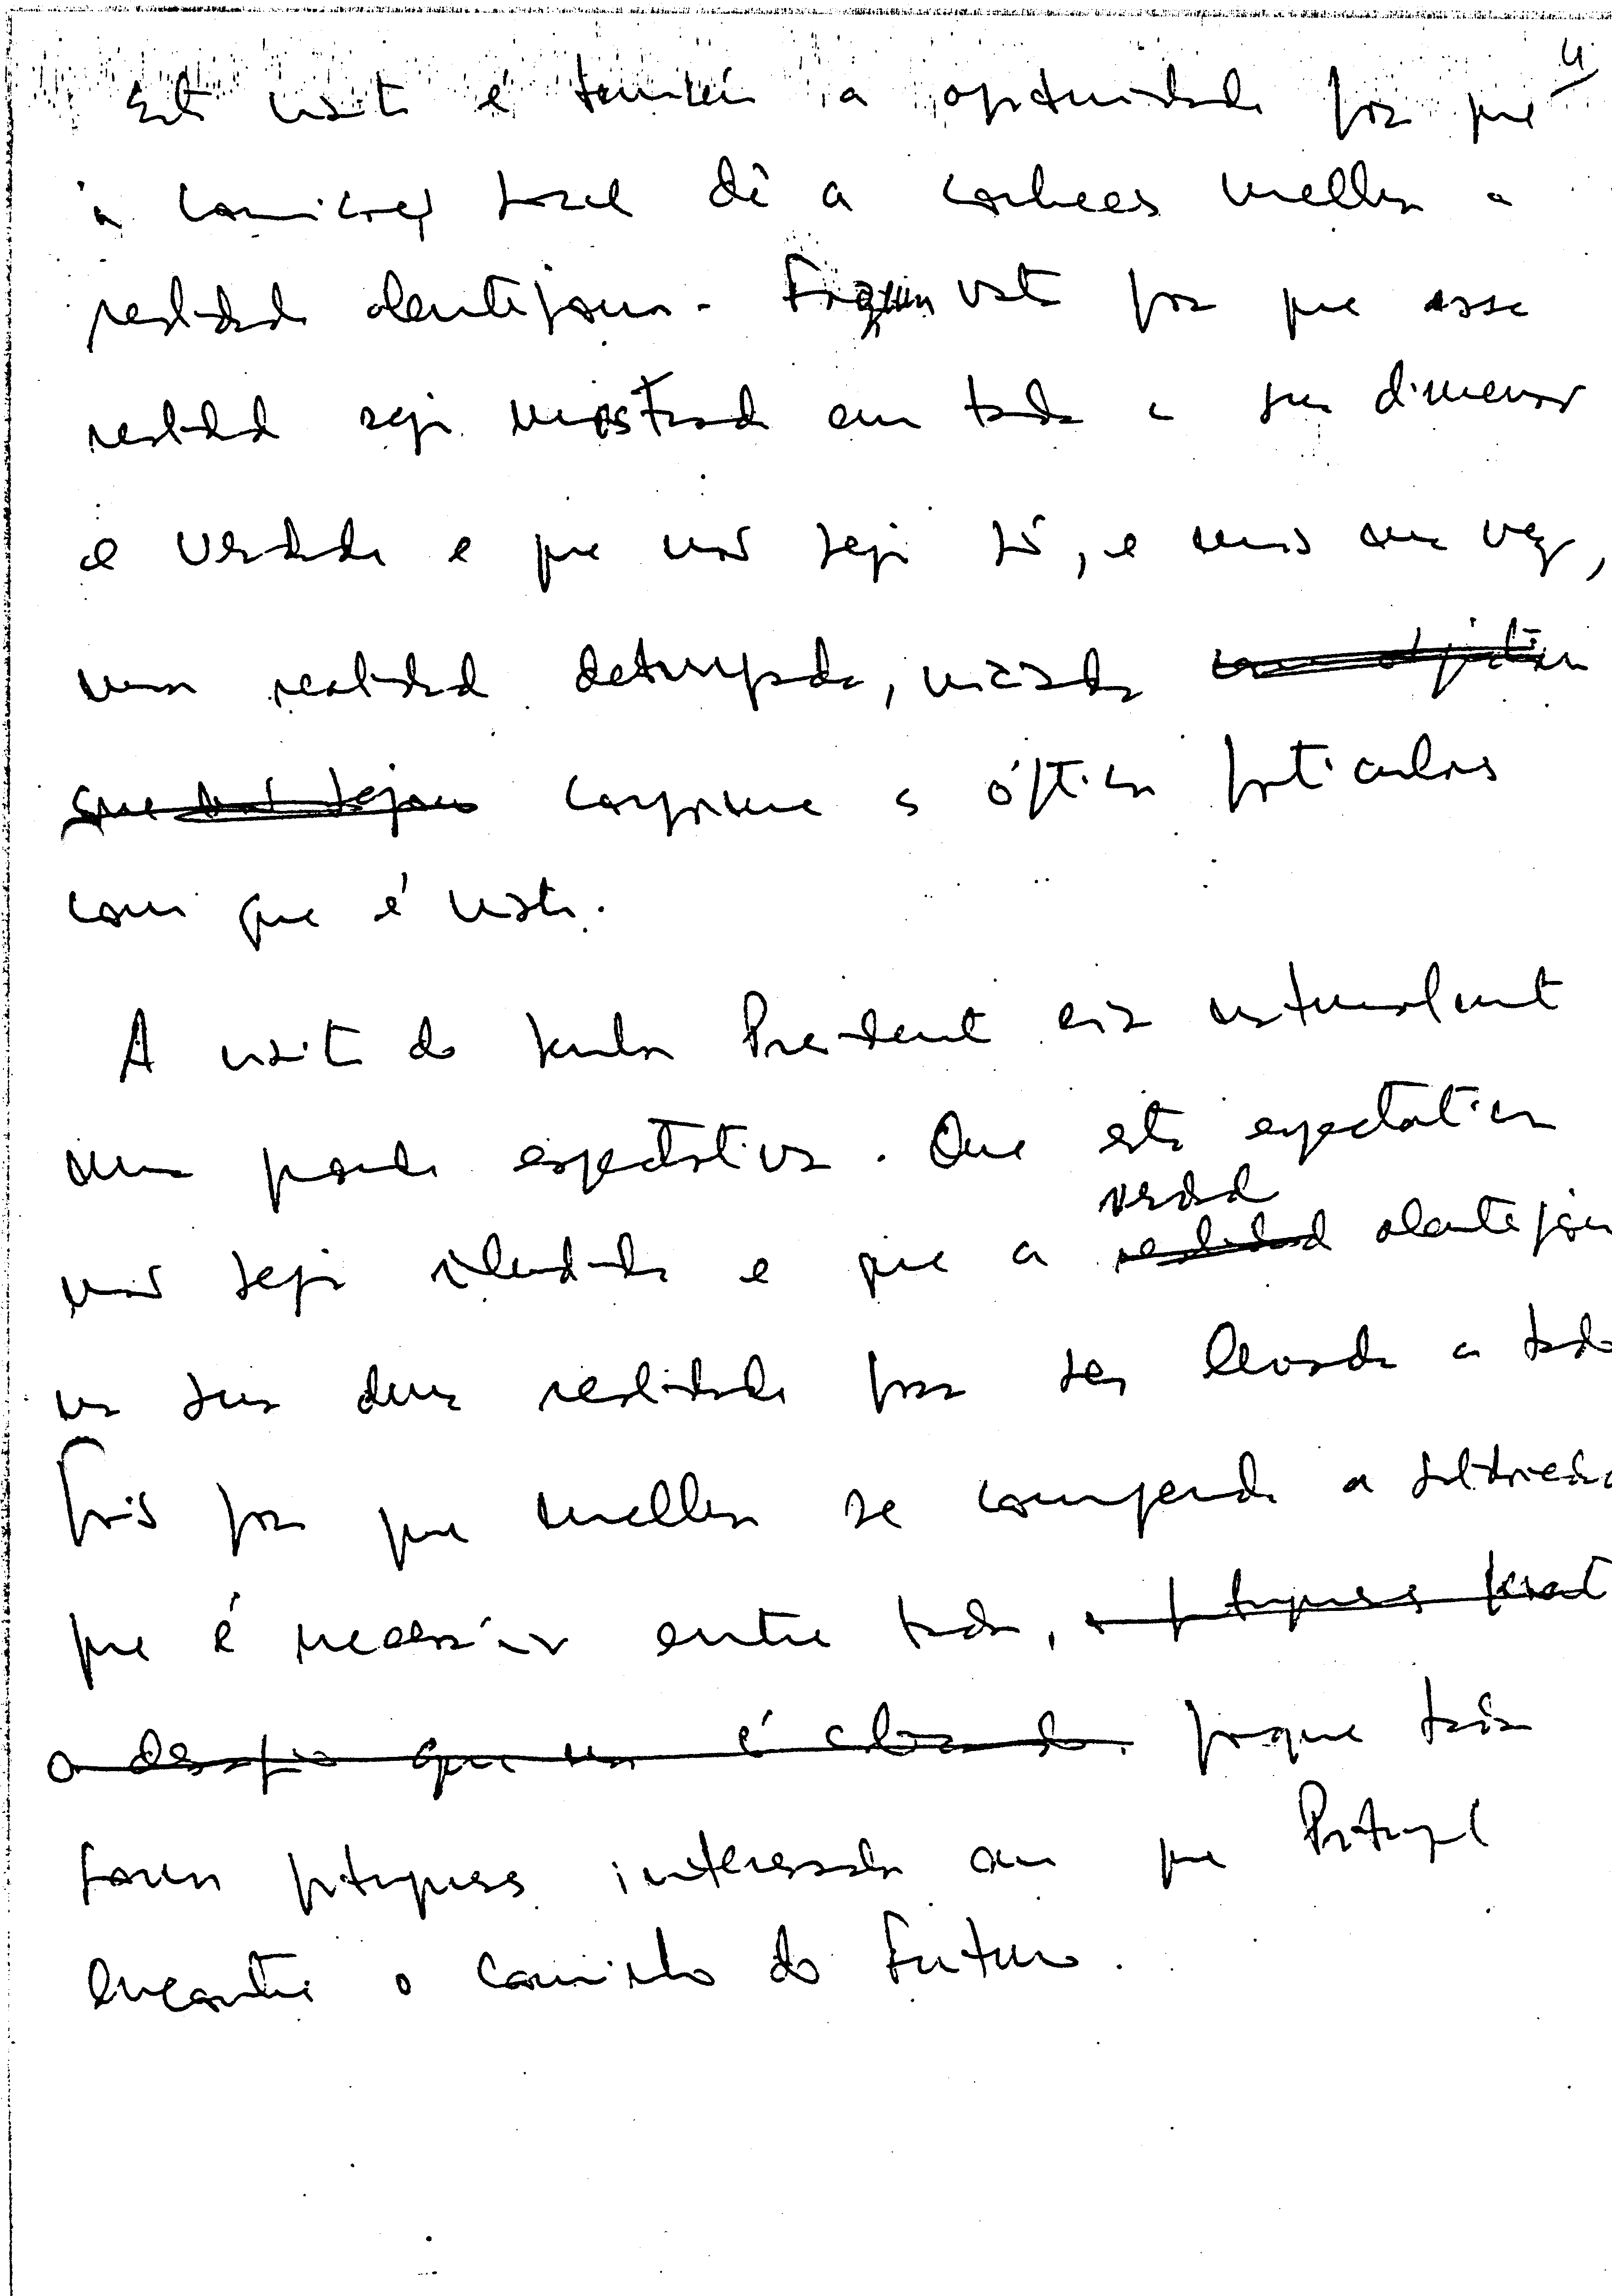 4
Esta visita é também a oportunidade para que
a comunicação social dê a conhecer melhor a
realidade alentejana. Façam votos para que essa
realidade seja mostrada em toda a sua dimensão
e verdade e que não seja só, e mais uma vez,
uma realidade deturpada, viciada com objectivos
que não sejam conforme as ópticas particulares
com que é vista.
A visita do Senhor Presidente cria naturalmente
uma grande expectativa. Que esta expectativa
verdade
não seja iludida e que a realidade alentejana
na sua dura realidade possa ser levada a todo
País para que melhor se compreenda a solidariedade
que é necessária entre todos, portugueses
o desafio que nos é colocado. porque todos
somos portugueses interessados em que Portugal
encontre o caminho do futuro.